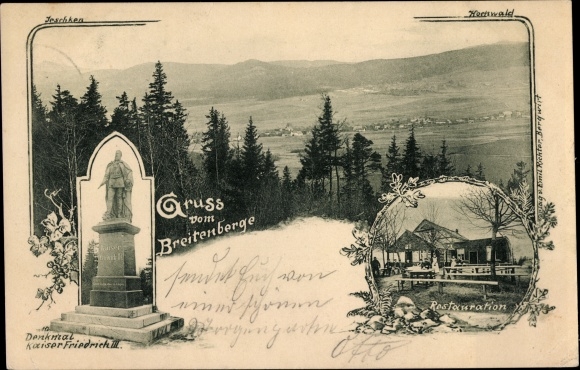 Jeschken
Hornwald
Gruss
vom
Breitenberge
Denkmal
Kaiser Friedrich III.
Restauration
Vlg. v. Emil Richter, Bergwirt
sendet Euch von
einer schönen
Morgenpartie
Otto